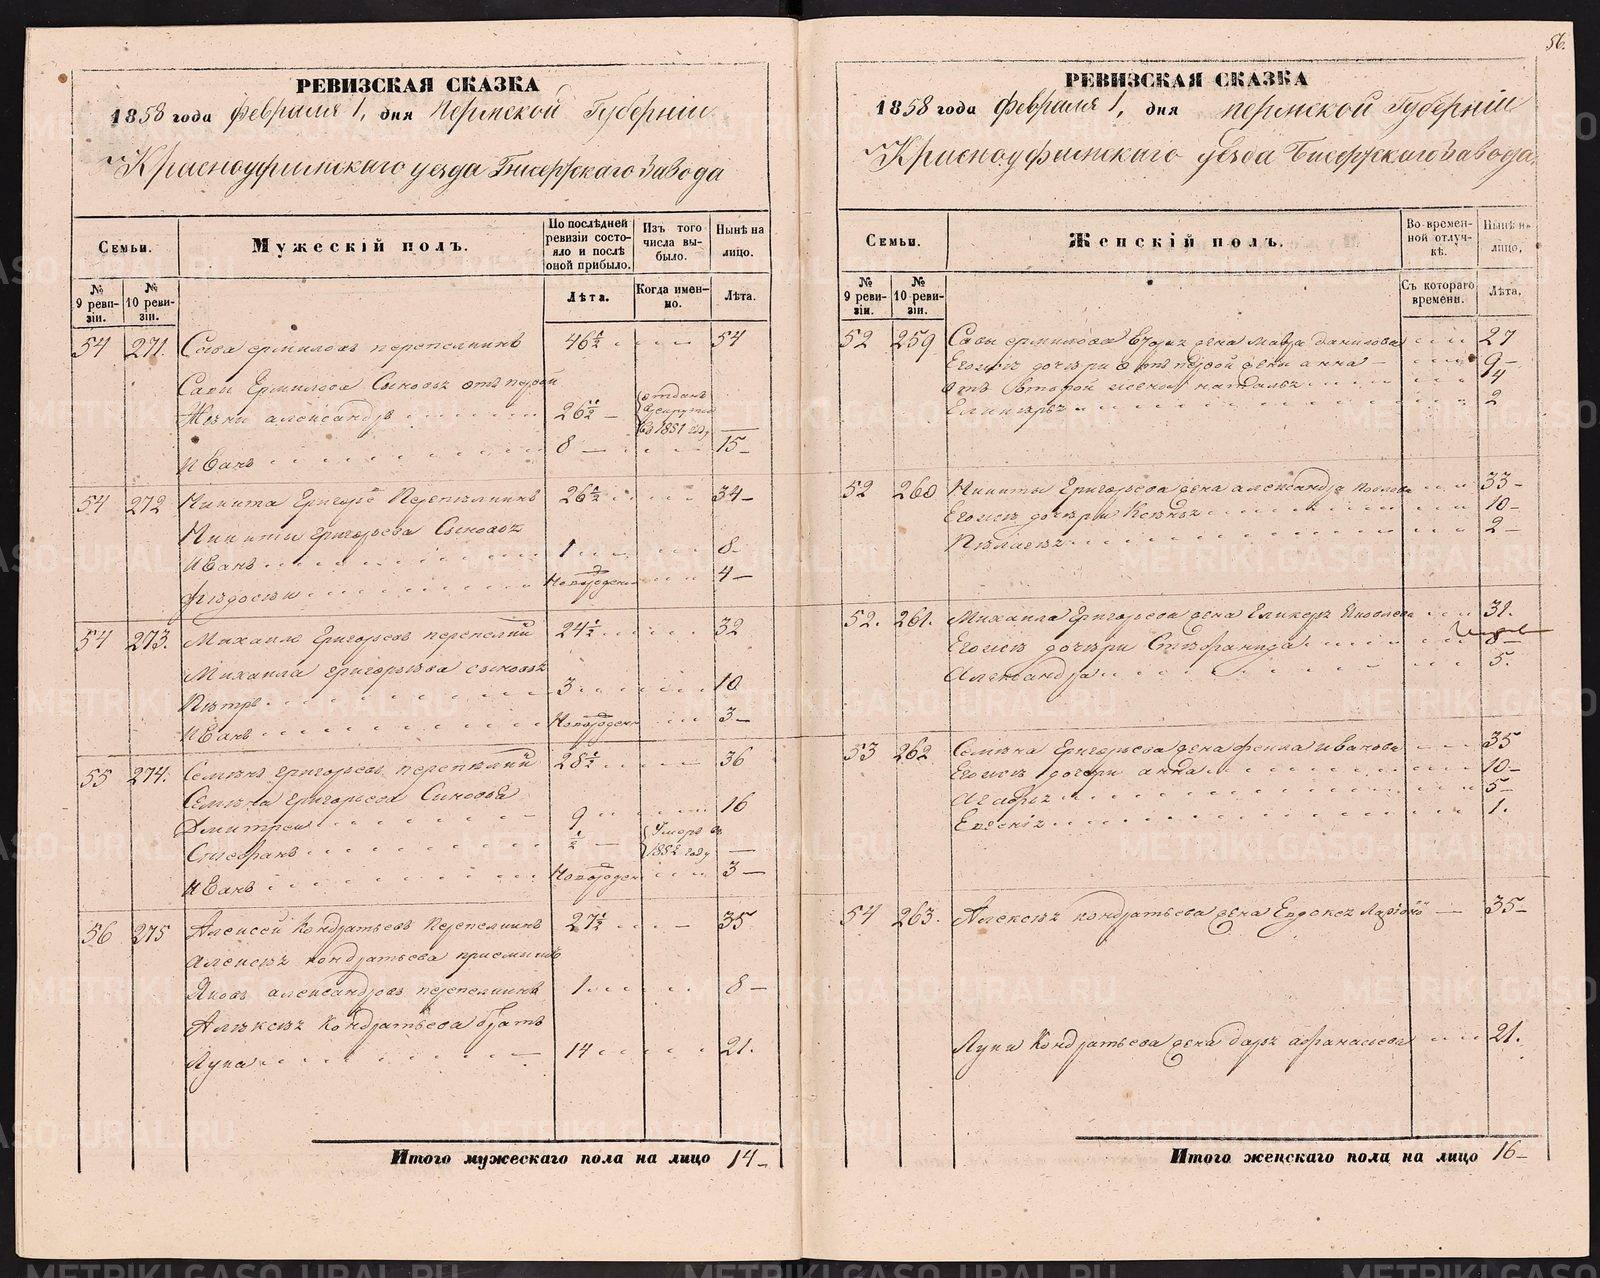 56.
РЕВИЗСКАЯ СКАЗКА
1858 года февраля 1, дня Пермской Губерніи
Красноуфимскаго уезда Бисерскаго Завода
Семьи.
Мужескій полъ.
По послѣдней ревизіи состояло и послѣ оной прибыло.
Изъ того числа выбыло.
Нынѣ на лицо.
№ 9 ревизіи.
№ 10 ревизіи.
Лѣта.
Когда именно.
Лѣта.
54 271. Сава ермиловъ перепелкинъ 46½ 54
Савы Ермилова Сыновья отъ первой
Жены александръ 26½ отданъ в рекруты въ 1851 году —
Иванъ 8 — 15 —
54 272 Никита Григорьевъ Перепелкинъ 26½ 34 —
Никиты григорьева Сыновья
Иванъ 1 8
Федосей Новорожден 4 —
54 273. Михаилъ Григорьевъ перепелкин 24½ 32
Михаила григорьева сыновья
Петръ 3 10
Иванъ Новорожден 3 —
55 274. Семенъ григорьевъ перепелкин 28½ 36
Семена григорьева Сыновья
Дмитрей 9 16
Стефанъ ½ — Умеръ въ 1852 году —
Иванъ Новорожден 3 —
56 275 Алексей Кондратьевъ Перепелкинъ 27½ 35
Алексея кондратьева приемышъ
Яковъ александровъ перепелкинъ 1 8 —
Алексея Кондратьева братъ
Лука 14 21.
Итого мужескаго пола на лицо 14 —
РЕВИЗСКАЯ СКАЗКА
1858 года Февраля 1, дня пермской Губерніи
Красноуфимскаго уезда Бисерскаго Завода
Семьи.
Женскій полъ.
Во временной отлучкѣ.
Нынѣ на лицо.
№ 9 ревизіи.
№ 10 ревизіи.
Съ котораго времени.
Лѣта.
52 259 Савы ермилова вторая жена Мавра данилова 27
Его дочери отъ первой жены анна 9 —
отъ Второй жены наталья 4
2
52 260 Никиты Григорьева жена александра 33 —
Его дочери 10 —
Пелагея 2 —
52. 261. Михаила Григорьева жена Яковлева 31.
Его дочери Стефанида 8 —
Александра 5.
53 262 Семена Григорьева жена фекла иванова 35
Его дочери анна 10 —
5 —
1.
54 263. Алексея кондратьева жена Евдокея 35 —
Луки Кондратьева жена дарья афанасьева 21.
Итого женскаго пола на лицо 16 —
METRIKI.GASO-URAL.RU